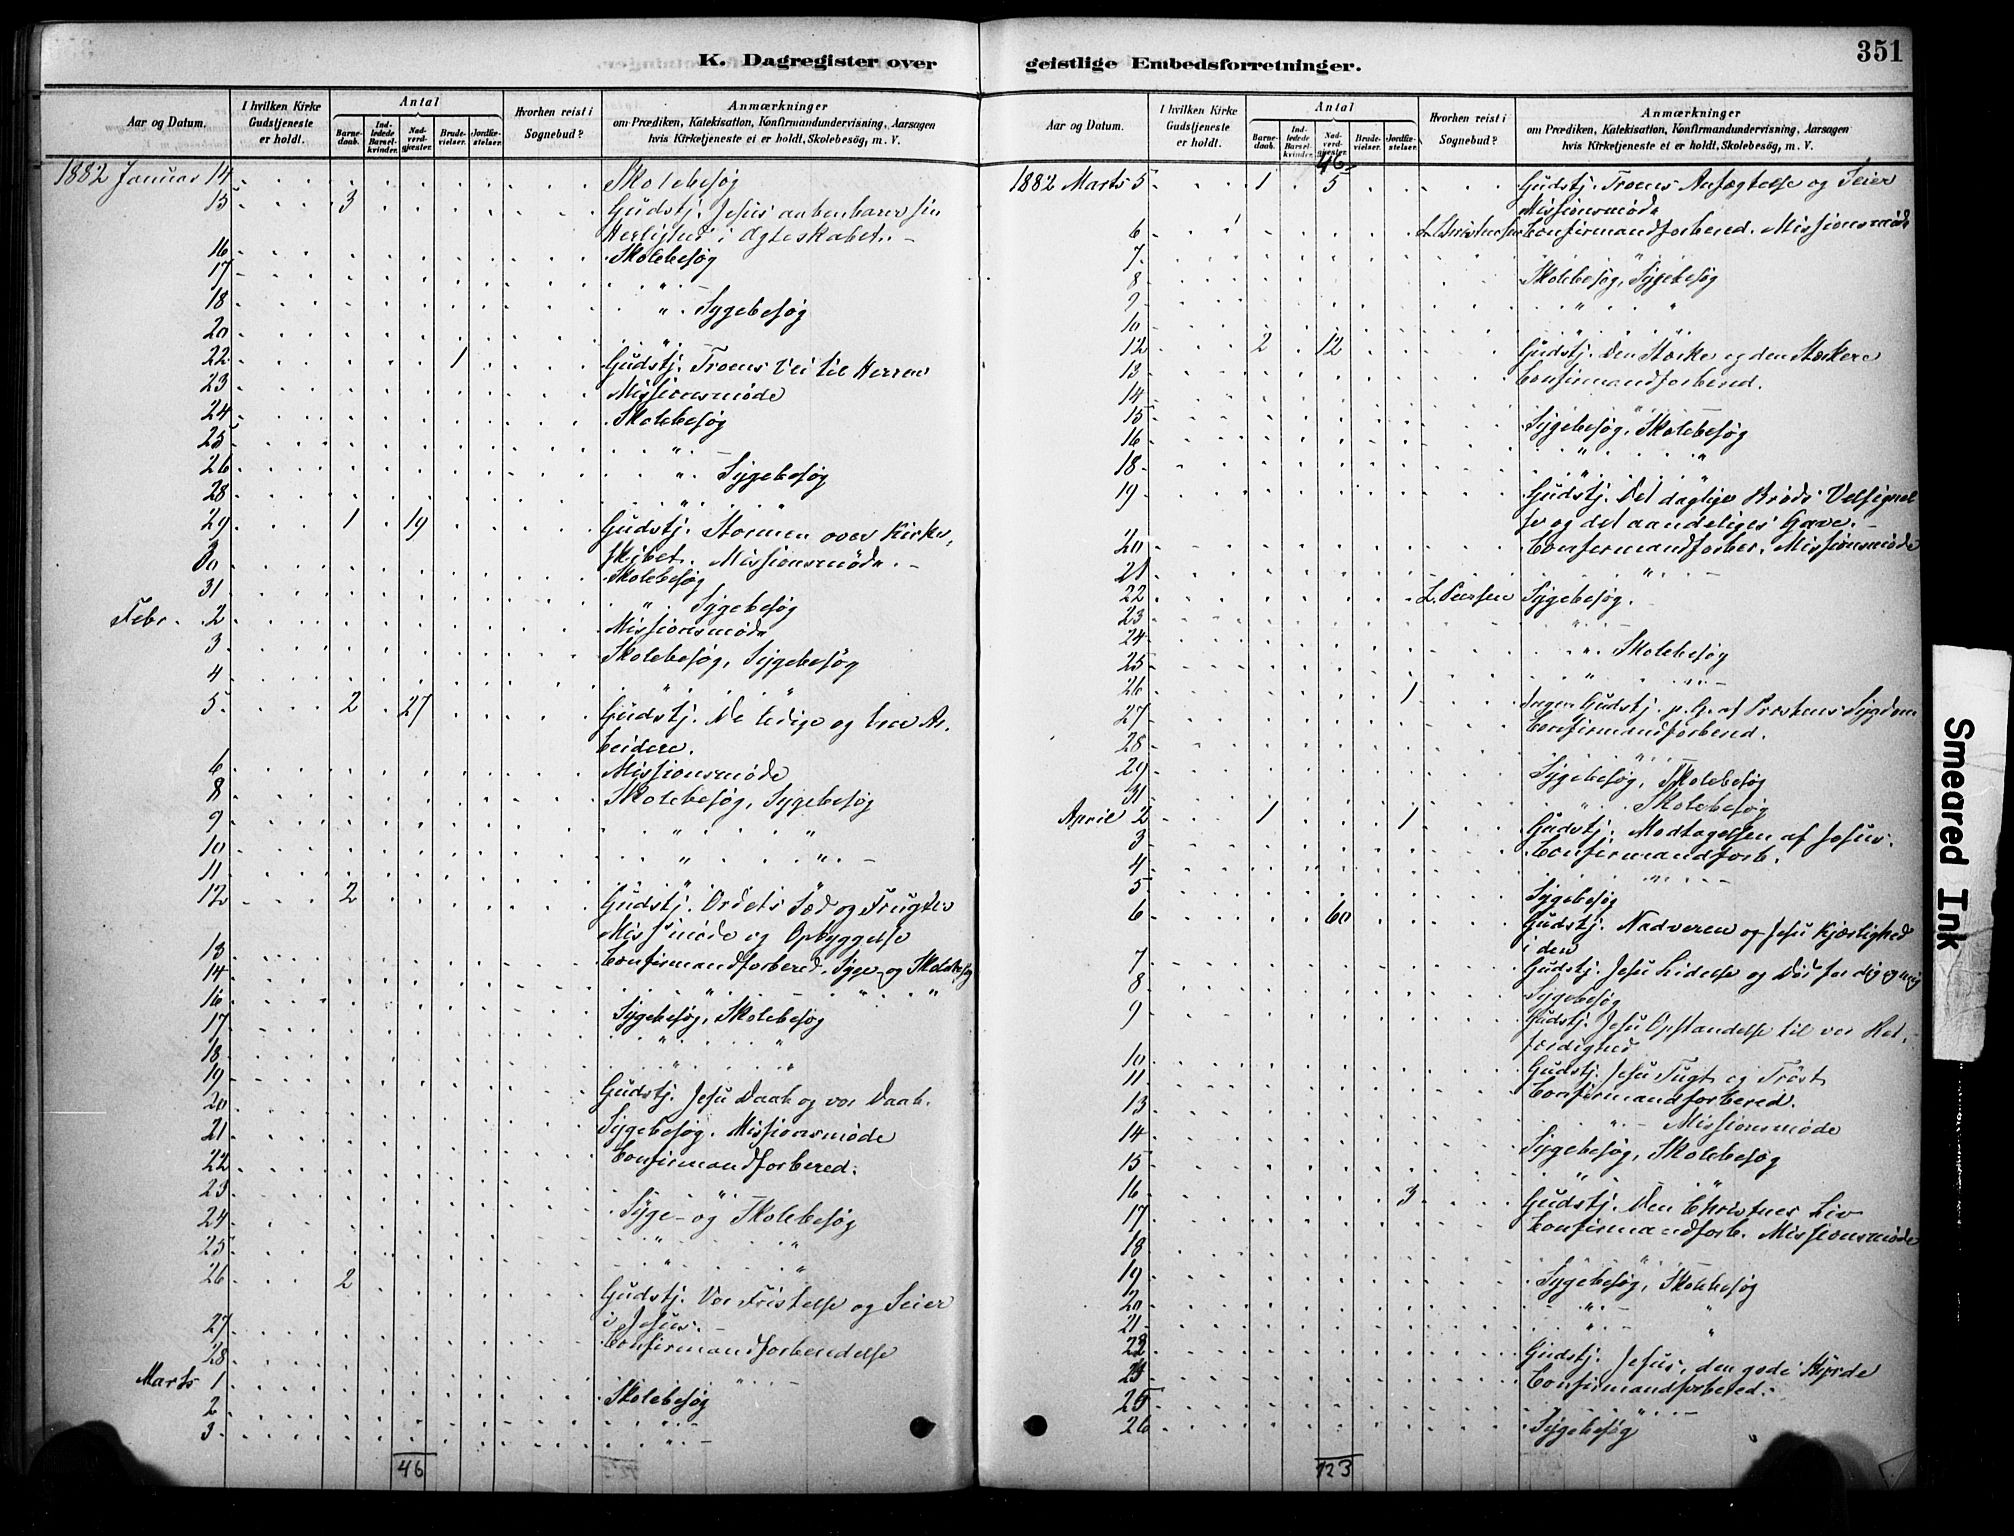 K. Dagregister over
Aar og Datum.
I hvilken Kirke Gudstjeneste er holdt.
Antal
Barnedaab.
Indledede Barselkvinder.
Nadverdgjester.
Brudevielser.
Jordfæstelser.
Hvorhen reist i Sognebud?
Anmærkninger
om Prædiken, Katekisation, Konfirmandundervisning, Aarsagen
hvis Kirketjeneste et er holdt, Skolebesög, m. V.
1882 Januar 14 Skolebesøg
15 3 Gudstj. Jesus aabenbarer sin
Herlighed i Ægteskabet. –
16 Skolebesøg
17 "
18 " Sygebesøg
20 "
22 1 Gudstj. Troens Vei til Herren
23 Missionsmøde
24 Skolebesøg
25 "
26 " Sygebesøg
28 " "
29 1 19 Gudstj. Stormen over Kirke-
skibet. Missionsmøde. –
30 Skolebesøg
31 " Sygebesøg
Febr. 2 Missionsmøde
3 Skolebesøg, Sygebesøg
4 " "
5 2 27 Gudstj. De ledige og tro Ar-
beidere.
6 Missionsmøde
8 Skolebesøg, Sygebesøg
9 " "
10 " " –
11 "
12 2 Gudstj. Ordets Sæd og Frugter
Miss.møde og Opbyggelse
13 Confirmandforbered. Syge- og Skolebesøg
14 " " "
16 Sygebesøg, Skolebesøg
17 " "
18 " "
19 Gudstj. Jesu Daab og vor Daab.
20 Sygebesøg. Missionsmøde
21 Confirmandforbered.
22 "
23 Syge- og Skolebesøg
24 " "
25 " "
26 2 Gudstj. Vor Fristelse og Seier
i Jesus. –
27 Confirmandforberedelse
28 " –
Marts 1 Skolebesøg
2 " –
3
46
geistlige Embedsforretninger.
351
Aar og Datum.
I hvilken Kirke Gudstjeneste er holdt.
Antal
Barnedaab.
Indledede Barselkvinder.
Nadverdgjester.
Brudevielser.
Jordfæstelser.
Hvorhen reist i Sognebud?
Anmærkninger
om Prædiken, Katekisation, Konfirmandundervisning, Aarsagen
hvis Kirketjeneste et er holdt, Skolebesög, m. V.
46
1882 Marts 5 1 5 Gudstj. Troens Anfægtelse og Seier
Missionsmøde
6 L. Christensen Confirmandforbered. Missionsmøde
7 "
8 Skolebesøg, Sygebesøg
9 " "
10 " "
12 2 12 Gudstj. Den Stærke og den Stærkere
13 Confirmandforbered.
14 " –
15 Sygebesøg, Skolebesøg
16 " "
18 " "
19 Gudstj. Det daglige Brøds Velsignel-
se og det aandeliges Gave. –
20 Confirmandforber. Missionsmøde
21 " –
22 Sygebesøg. –
23 " –
24 " Skolebesøg
25 " " –
26 1 Ingen Gudstj. p. G. af Præstens Sygdom
27 Confirmandforbered.
28 "
29 Sygebesøg, Skolebesøg
31 " Skolebesøg
April 2 1 1 Gudstj. Modtagelsen af Jesus.
3 Confirmandforb.
4 " –
5 Sygebesøg
6 60 Gudstj. Nadveren og Jesu Kjærlighed
i den
7 Gudstj. Jesu Lidelse og Død for dig og mig
8 Sygebesøg
9 Gudstj. Jesu Opstandelse til vor Ret-
færdighed
10 Gudstj. Jesu Tugt og Trøst
11 Confirmandforbered.
13 " – Missionsmøde
14 Sygebesøg, Skolebesøg
15 " "
16 3 Gudstj. Den Christnes Liv
17 Confirmandforb. Missionsmøde
18 " "
19 Sygebesøg, Skolebesøg
20 " "
21 " "
23 Gudstj. Jesus, den gode Hyrde
Confirmandforbered.
25 " –
26 Sygebesøg
123
Smeared Ink